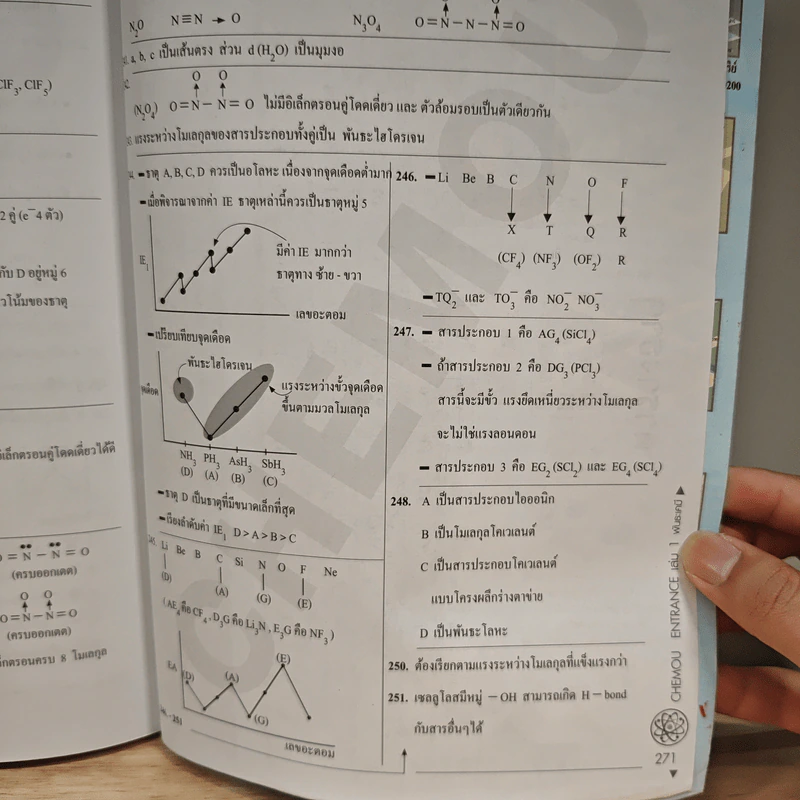 ClF₃, ClF₅)
2 คู่ (e⁻4 ตัว)
กับ D อยู่หมู่ 6
วโน้มของธาตุ
เล็กตรอนคู่โดดเดี่ยวได้ดี
O = N̈ – N̈ = O
(ครบออกเตต)
O O
O = N – N = O
(ครบออกเตต)
กตรอนครบ 8 โมเลกุล
N₂O N≡N → O N₃O₄ O = N – N – N = O
a, b, c เป็นเส้นตรง ส่วน d (H₂O) เป็นมุมงอ
O O
(N₂O₄) O = N – N = O ไม่มีอิเล็กตรอนคู่โดดเดี่ยว และ ตัวล้อมรอบเป็นตัวเดียวกัน
แรงระหว่างโมเลกุลของสารประกอบทั้งคู่เป็น พันธะไฮโดรเจน
– ธาตุ A, B, C, D ควรเป็นอโลหะ เนื่องจากจุดเดือดต่ำมาก
– เมื่อพิจารณาจากค่า IE ธาตุเหล่านี้ควรเป็นธาตุหมู่ 5
IE₁
มีค่า IE มากกว่า
ธาตุทาง ซ้าย - ขวา
เลขอะตอม
– เปรียบเทียบจุดเดือด
พันธะไฮโดรเจน
แรงระหว่างขั้วจุดเดือด
ขึ้นตามมวลโมเลกุล
NH₃ PH₃ AsH₃ SbH₃
(D) (A) (B) (C)
– ธาตุ D เป็นธาตุที่มีขนาดเล็กที่สุด
– เรียงลำดับค่า IE₁ D > A > B > C
Li Be B C Si N O F Ne
(D) (A) (G) (E)
(AE₄ คือ CF₄, D₃G คือ Li₃N, E₃G คือ NF₃)
EA (D) (A) (E)
(G)
เลขอะตอม
246. – Li Be B C N O F
X T Q R
(CF₄) (NF₃) (OF₂) R
– TQ₂⁻ และ TO₃⁻ คือ NO₂⁻ NO₃⁻
247. – สารประกอบ 1 คือ AG₄ (SiCl₄)
– ถ้าสารประกอบ 2 คือ DG₃ (PCl₃)
สารนี้จะมีขั้ว แรงยึดเหนี่ยวระหว่างโมเลกุล
จะไม่ใช่แรงลอนดอน
– สารประกอบ 3 คือ EG₂ (SCl₂) และ EG₄ (SCl₄)
248. A เป็นสารประกอบไอออนิก
B เป็นโมเลกุลโคเวเลนต์
C เป็นสารประกอบโคเวเลนต์
แบบโครงผลึกร่างตาข่าย
D เป็นพันธะโลหะ
250. ต้องเรียกตามแรงระหว่างโมเลกุลที่แข็งแรงกว่า
251. เซลลูโลสมีหมู่ – OH สามารถเกิด H – bond
กับสารอื่นๆได้
CHEMOU ENTRANCE เล่ม 1 พันธะเคมี
271
CHEMOU
200